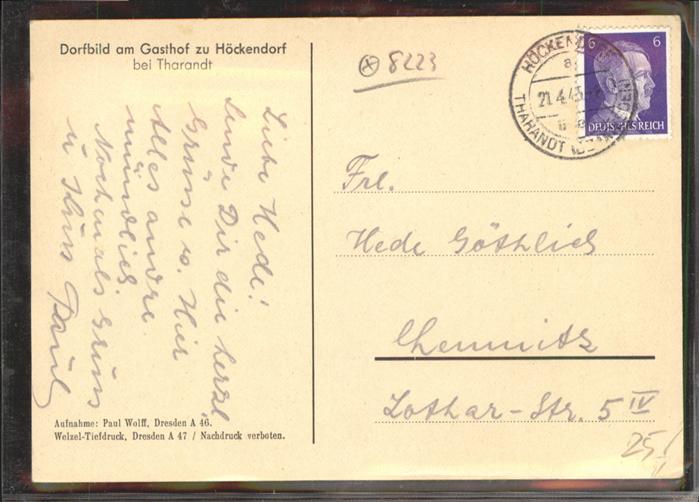 Dorfbild am Gasthof zu Höckendorf
bei Tharandt
⊗ 8223
6 6
DEUTSCHES REICH
HÖCKENDORF
a
21.4.43
THARANDT
Liebe Hede!
Sende Dir die herzl
Grüsse v. Hier
Alles andre
mündlich
Nochmals Gruss
u Kuss Paul
Frl.
Hede Göthlich
Chemnitz
Lothar-Str. 5 IV
25,-
Aufnahme: Paul Wolff, Dresden A 46.
Welzel-Tiefdruck, Dresden A 47 / Nachdruck verboten.